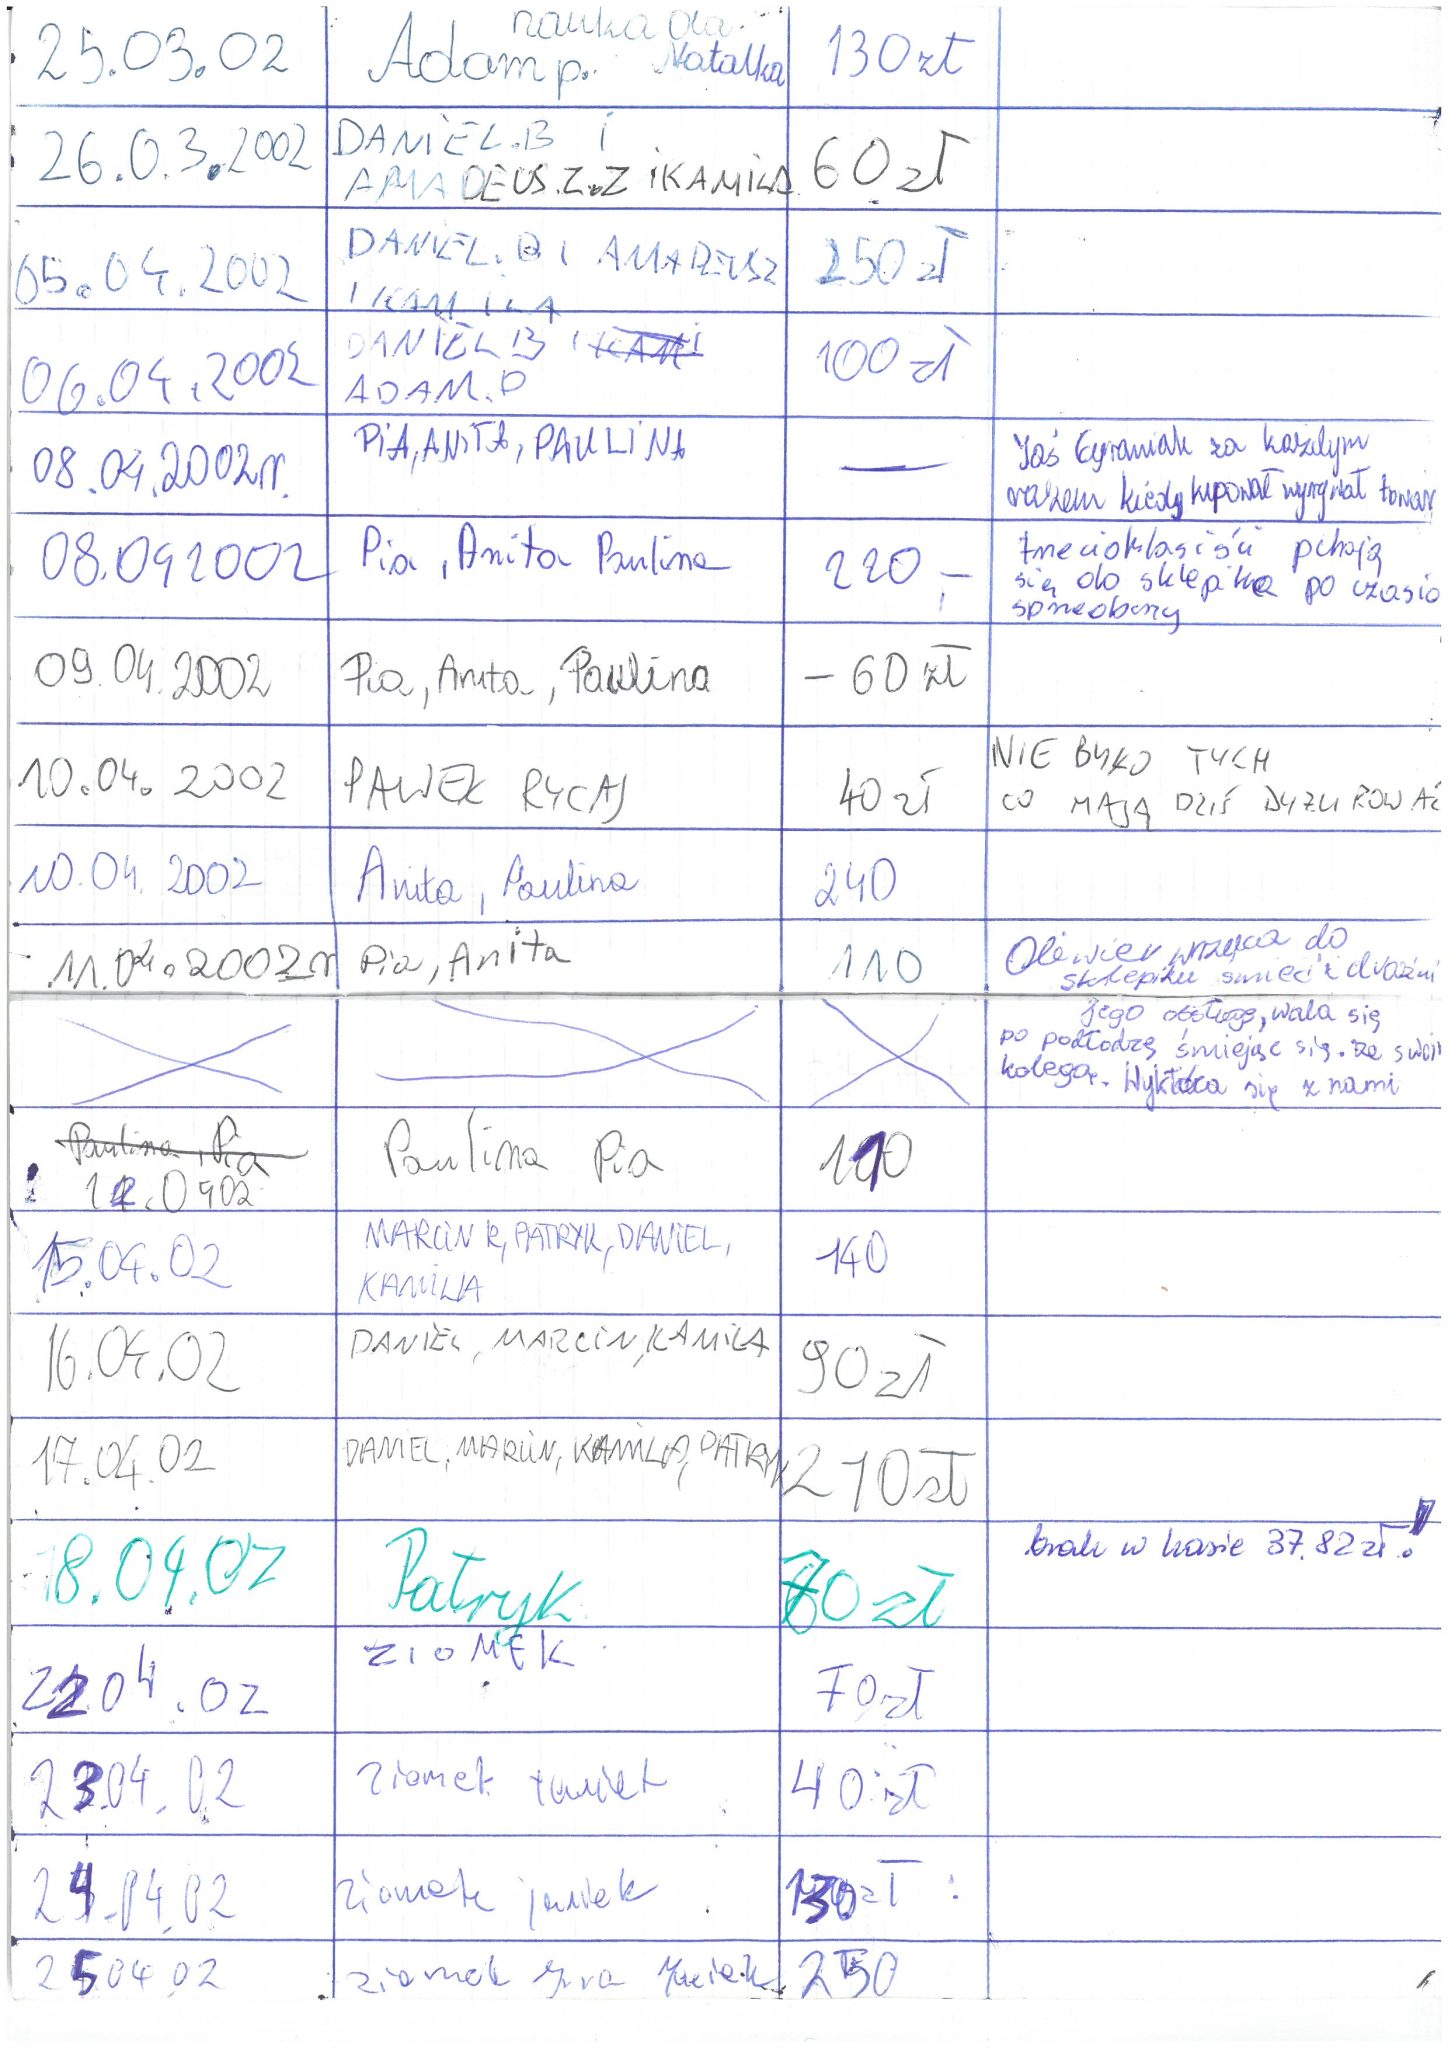 25.03.02 Adam p. Natalka 130zł
26.03.2002 DANIEL.B I
AMADEUSZ.Z I KAMILA 60 zł
05.04.2002 DANIEL.B I AMADEUSZ 250 zł
I KAMILA
06.04.2002 DANIEL B I KAMI 100 zł
ADAM.P
08.04.2002r. PIA, ANITA, PAULINA — Jaś za każdym
razem kiedy kupował towar
08.042002 Pia, Anita Paulina 220,- trzecioklasiści pchają
się do sklepika po czasie
sprzedaży
09.04.2002 Pia, Anita, Paulina – 60 zł
10.04.2002 PAWEŁ RYCAJ 40 zł NIE BYŁO TYCH
CO MAJĄ DZIŚ DYZUROWAĆ
10.04.2002 Anita, Paulina 240
11.04.2002r Pia, Anita 110 Oliwier wrzuca do
sklepiku śmieci i drażni
jego obsługę, wala się
po podłodze śmiejąc się ze swoim
kolegą. Wykłóca się z nami
Paulina, Pia
12.0402 Paulina Pia 110
15.04.02 MARCIN R, PATRYK, DANIEL, 140
KAMILA
16.04.02 DANIEL, MARCIN, KAMILA 90 zł
17.04.02 DANIEL, MARCIN, KAMILA, PATRYK 210 zł
18.04.02 Patryk 70 zł brak w kasie 37.82 zł.!
2204.02 ZIOMEK 70 zł
2304.02 ziomek 40 zł
24.04.02 ziomek 130 zł
250402 ziomek 250